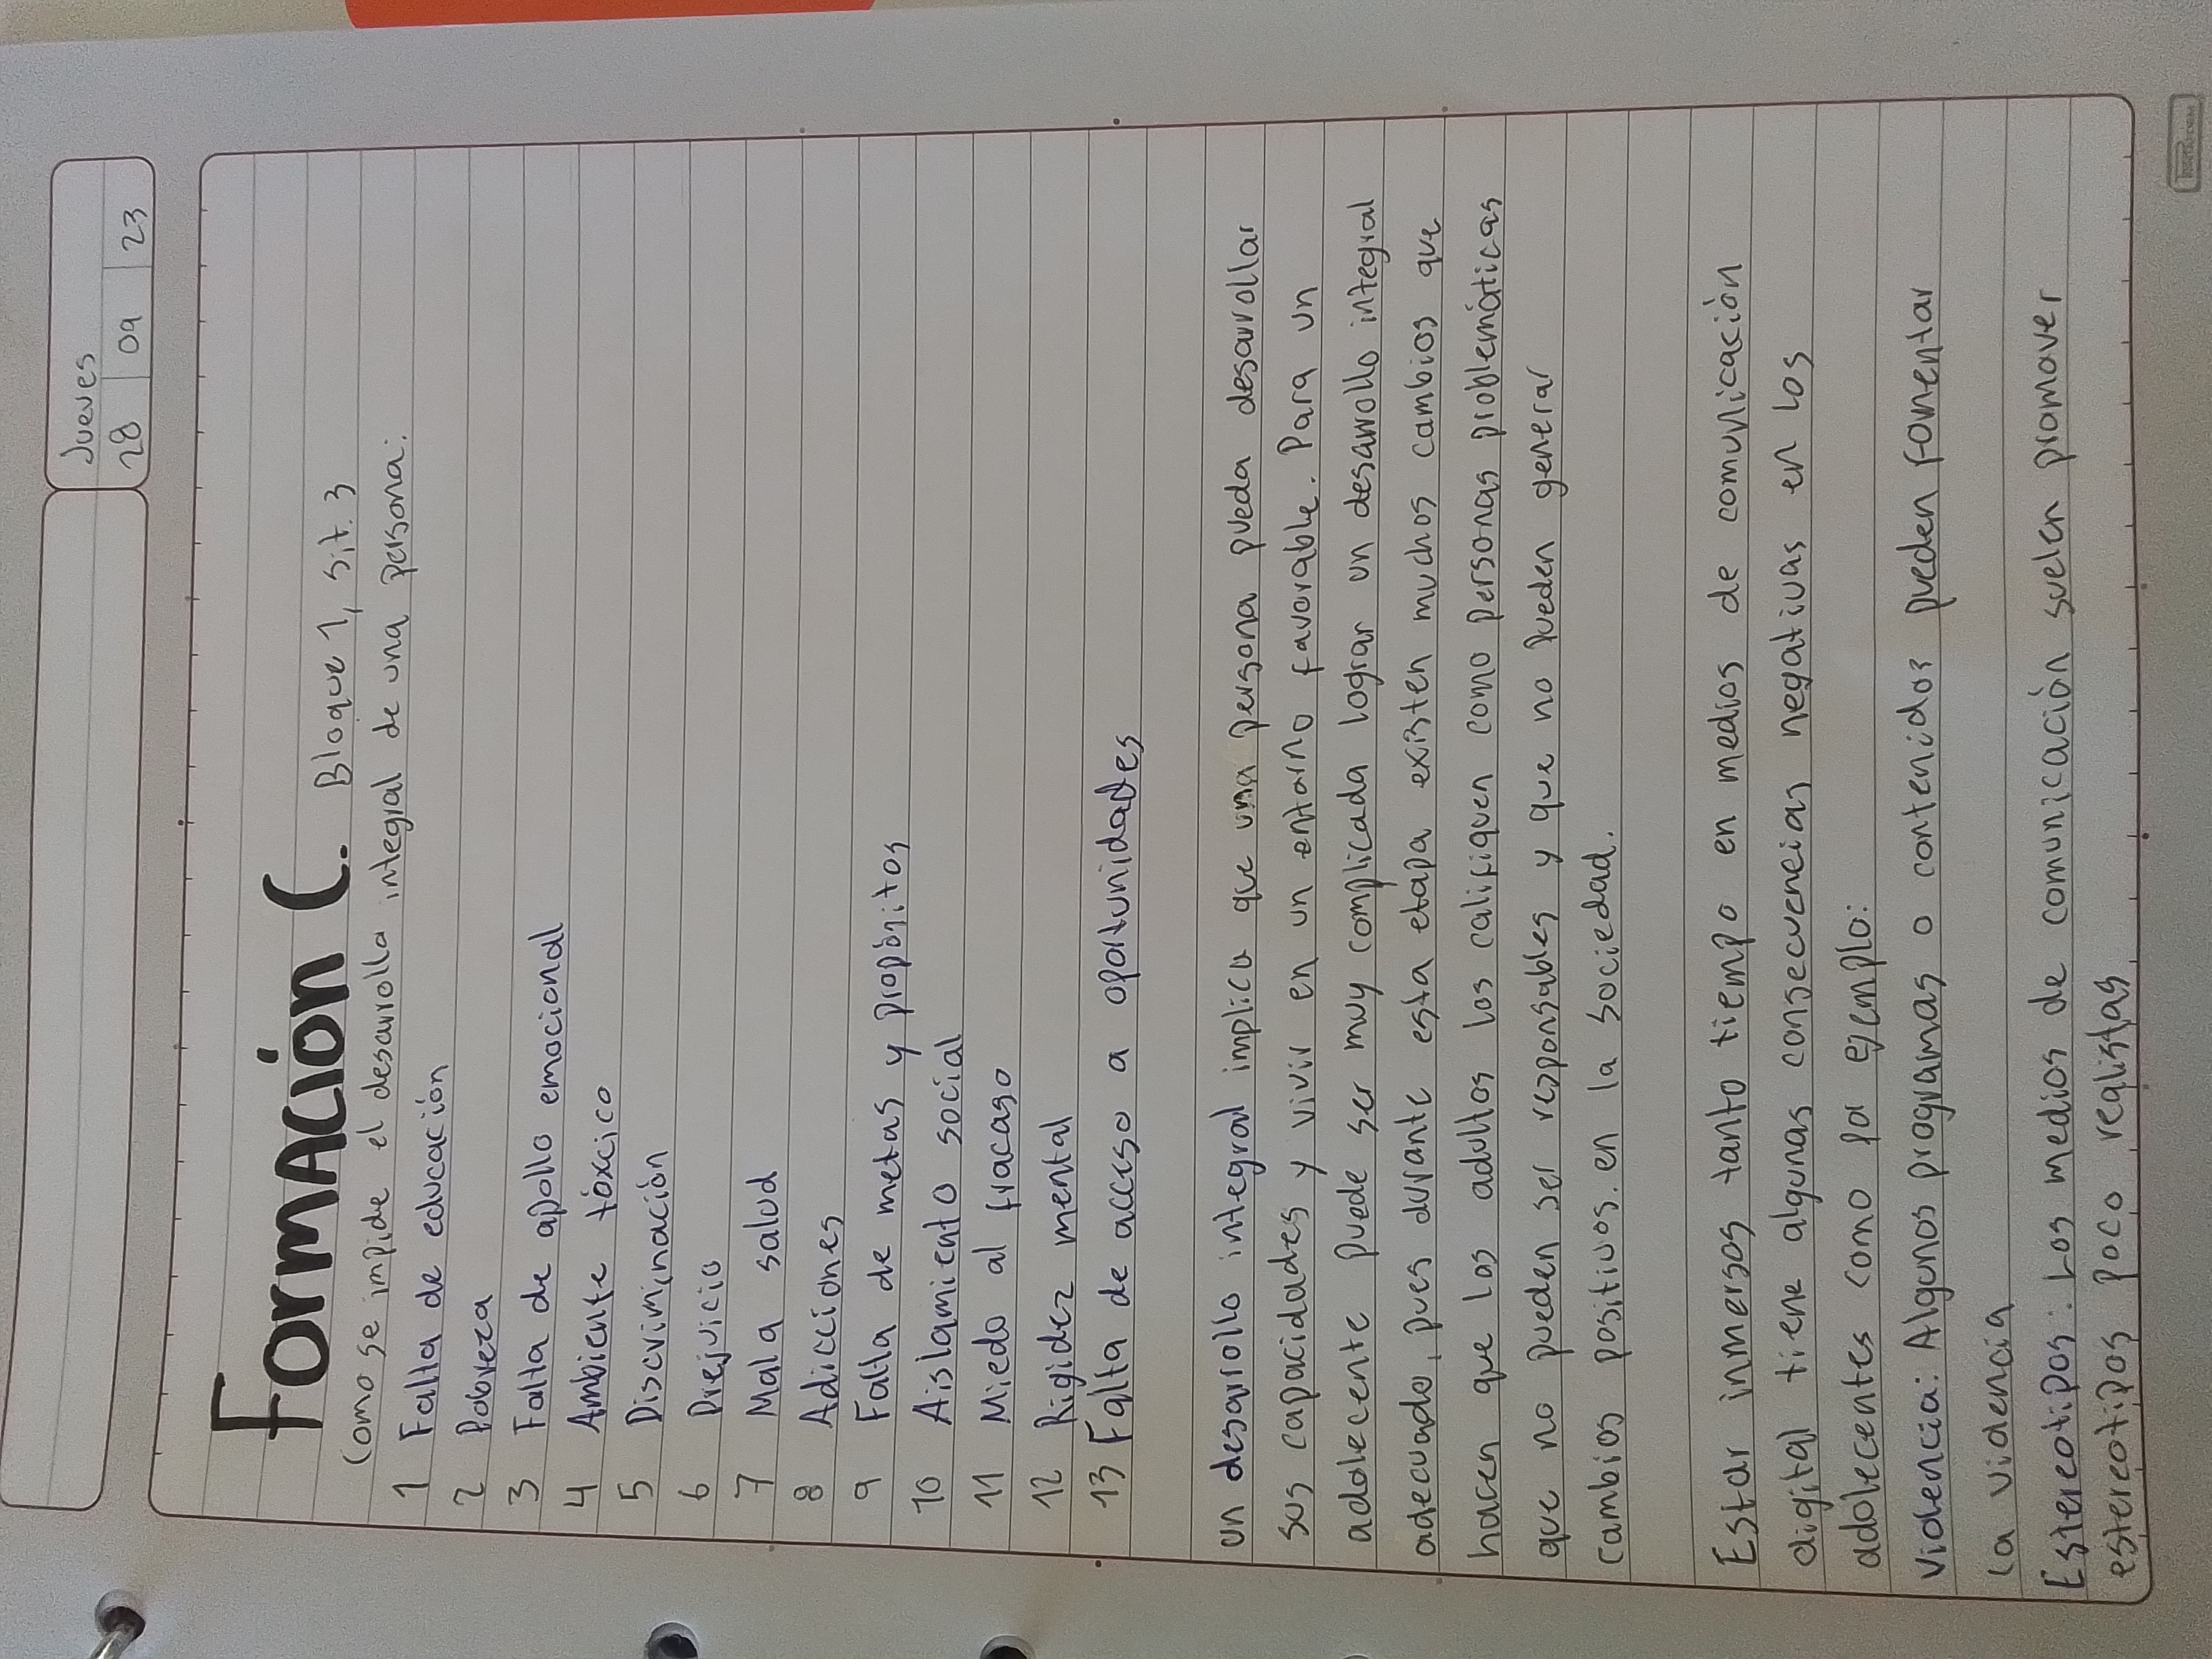 Jueves
28 09 23
FormAción C. Bloque 1, sit. 3
Como se impide el desarrollo integral de una persona:
1 Falta de educación
2 Pobreza
3 Falta de apollo emocional
4 Ambiente tóxcico
5 Discriminación
6 Prejuicio
7 Mala salud
8 Adicciones
9 Falta de metas y propósitos
10 Aislamiento social
11 Miedo al fracaso
12 Rigidez mental
13 Falta de acceso a oportunidades
un desarrollo integral implica que una persona pueda desarrollar
sus capacidades y vivir en un entorno favorable. Para un
adolecente puede ser muy complicada lograr un desarrollo integral
adecuado, pues durante esta etapa existen muchos cambios que
hacen que los adultos los califiquen como personas problemáticas
que no pueden ser responsables y que no pueden generar
cambios positivos en la sociedad.
Estar inmersos tanto tiempo en medios de comunicación
digital tiene algunas consecuencias negativas en los
adolecentes como por ejemplo:
Violencia: Algunos programas o contenidos pueden fomentar
la violencia
Estereotipos: Los medios de comunicación suelen promover
estereotipos poco realistas